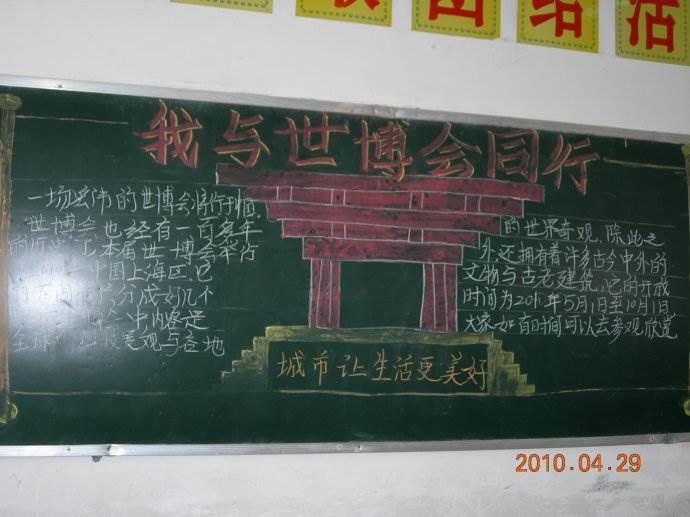 团结活
我与世博会同行
一场宏伟的世博会将行
世博会也经有一百多年
本届世博会举行
中国上海
分成好几个
中内容是
观与各地
的世界奇观,除此之
外还拥有着许多古今中外的
文物与古老建筑,它的开成
时间为2010年5月1日至10月1日
大家如有时间可以去参观欣赏
城市让生活更美好
2010.04.29